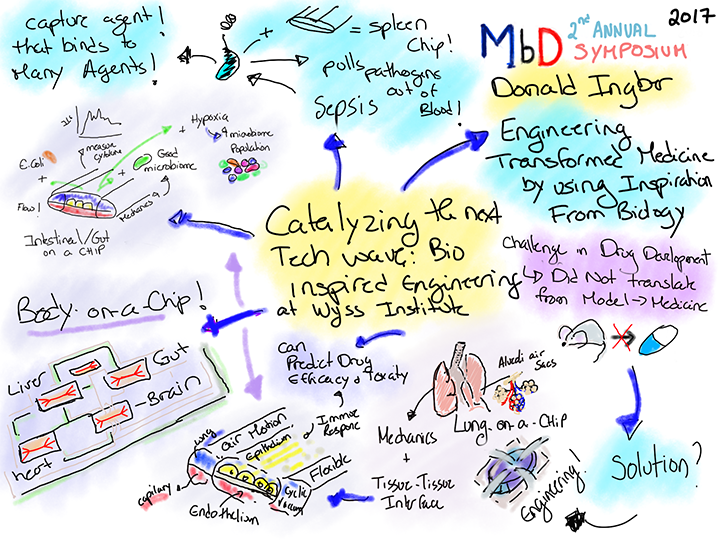 2017
MbD 2nd ANNUAL
SYMPOSIUM
Donald Ingber
Engineering
Transformed Medicine
by using Inspiration
From Biology
Catalyzing the next
Tech wave: Bio
inspired Engineering
at Wyss Institute
capture agent!
that binds to
Many Agents!
+
= spleen
Chip!
pulls pathogens
out of
Blood!
Sepsis
+ Hypoxia
microbiome
Population
measure
cytokine
E.Coli
+
+
Good
microbiome
Flow!
Mechanics
Intestinal/Gut
on a CHIP
Body-on-a-Chip!
Liver
Gut
Brain
heart
challenge in Drug Development
↳ Did Not translate
from Model → Medicine
Solution?
Engineering!
Alveoli air
Sacs
Lung-on-a-CHIP
Mechanics
+
Tissue-Tissue
Interface
can
Predict Drug
Efficacy & Toxicity
Lung
air Motion
Epithelium
Immune
Response
Flexible
cyclic
vacuum
capillary
Endothelium